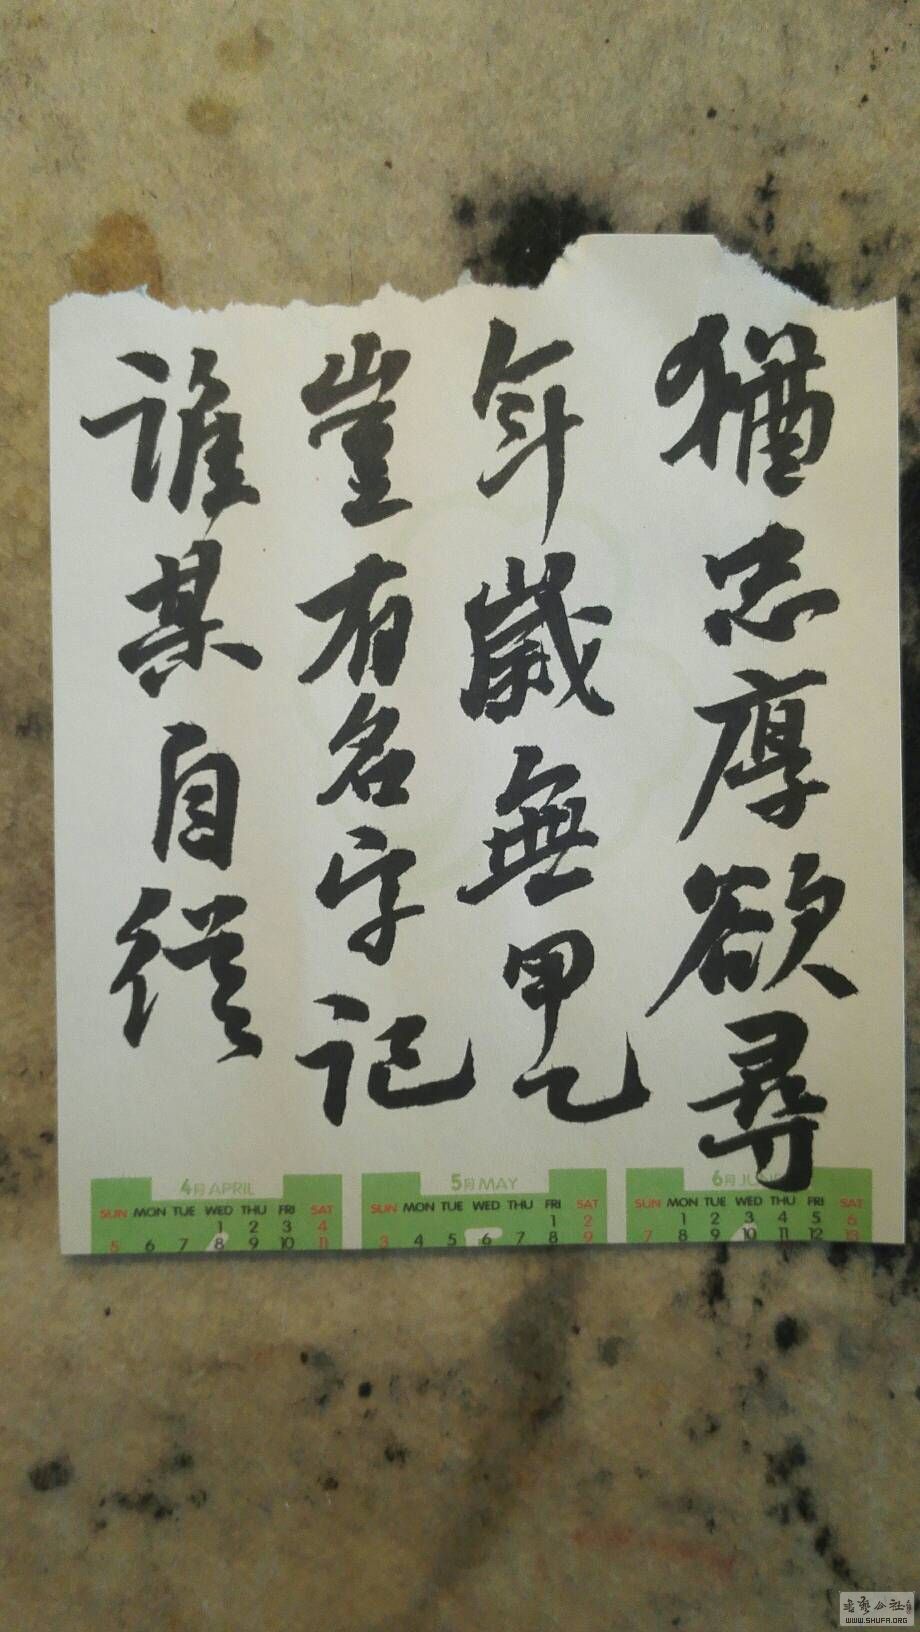 猶忠厚欲尋
年歲無甲乙
豈有名字記
誰某自從
4月 APRIL
SUN MON TUE WED THU FRI SAT
1 2 3 4
5 6 7 8 9 10 11
5月 MAY
SUN MON TUE WED THU FRI SAT
1 2
3 4 5 6 7 8 9
6月 JUNE
SUN MON TUE WED THU FRI SAT
1 2 3 4 5 6
7 8 9 10 11 12 13
WWW.SHUFA.ORG